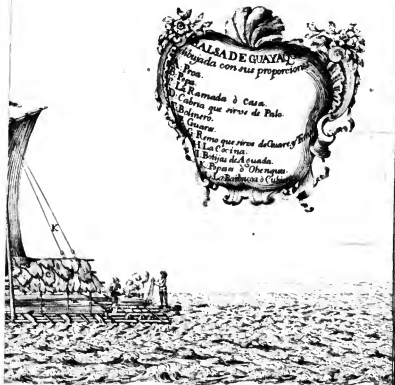 BALSA DE GUAYAQ.L
dibujada con sus proporciones
Proa.
Popa.
La Ramada ò Casa.
D. Cabria que sirve de Palo.
Bolinero.
Guares.
G. Remo que sirve de Guare, y
H. La Cocina.
I. Botijas de Aguada.
K. Popeses ò Obenques.
La Barbacoa ò
K